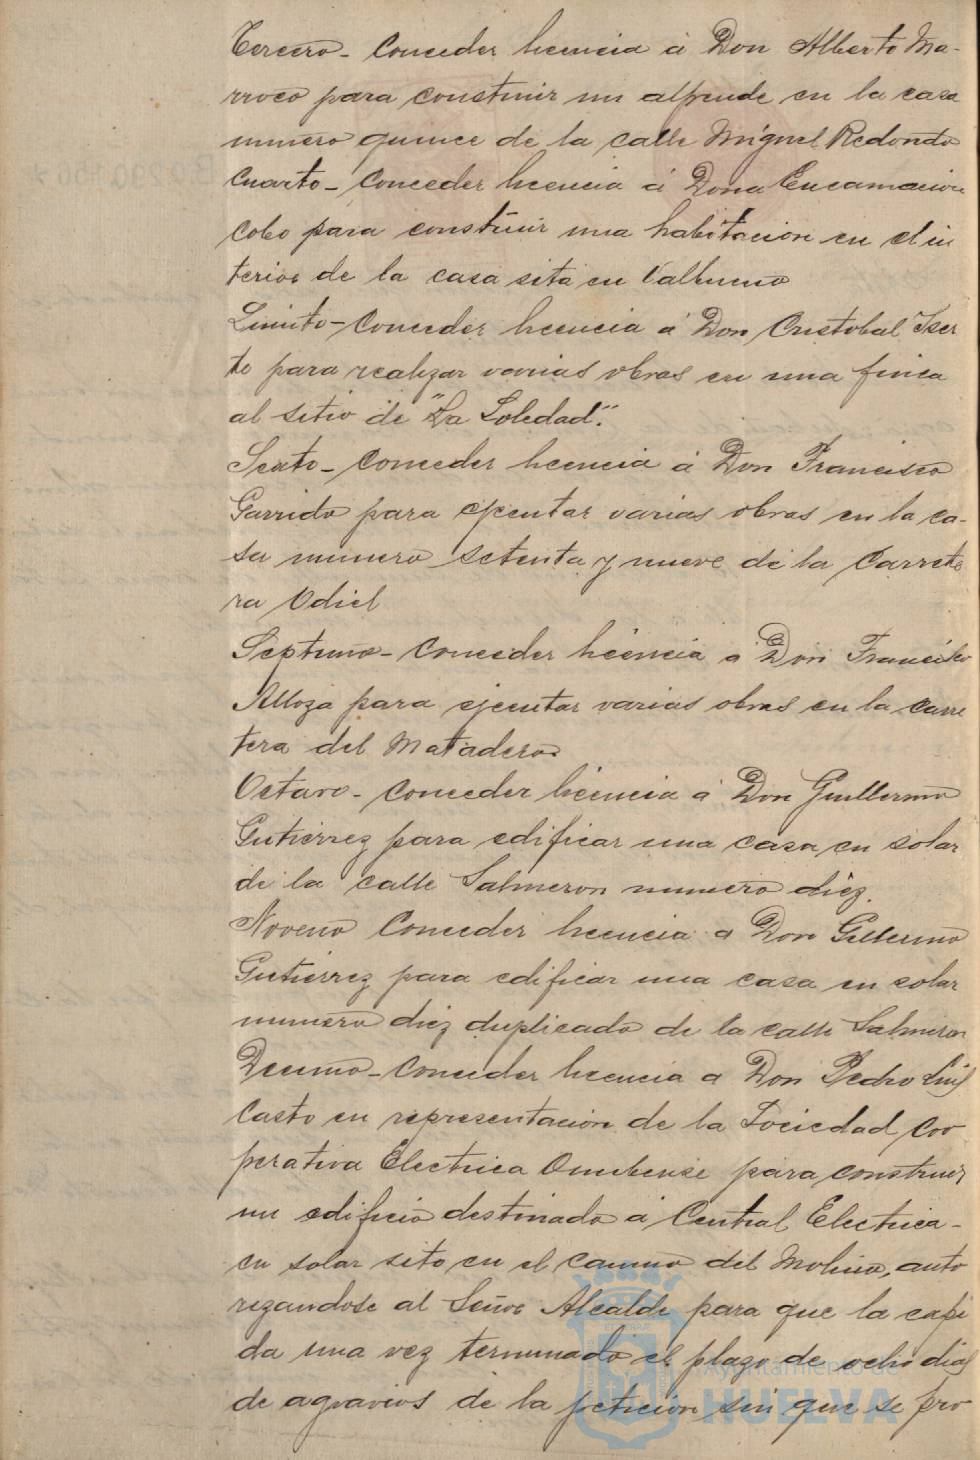 Tercero - Conceder licencia á Don Alberto Ma-
rroco para construir un alpende en la casa
numero quince de la calle Miguel Redondo
Cuarto - Conceder licencia á Doña Encarnacion
Cobo para construir una habitacion en el in
terior de la casa sita en Valbueno
Quinto - Conceder licencia á Don Cristobal Iser
te para realizar varias obras en una finca
al sitio de "La Soledad".
Sexto - Conceder licencia á Don Francisco
Garrido para ejecutar varias obras en la ca-
sa numero setenta y nueve de la Carrete
ra Odiel
Septimo - Conceder licencia á Don Francisco
Alloza para ejecutar varias obras en la carre
tera del Matadero
Octavo - Conceder licencia á Don Guillermo
Gutierrez para edificar una casa en solar
de la calle Salmeron numero diez.
Noveno Conceder licencia a Don Gillermo
Gutierrez para edificar una casa en solar
numero diez duplicado de la calle Salmeron
Decimo - Conceder licencia a Don Pedro Luis
Casto en representacion de la Sociedad Coo
perativa Electrica Onubense para construir
un edificio destinado á Central Electrica -
en solar sito en el camino del Molino, auto
rizandose al Señor Alcalde para que la expi
da una vez terminado el plazo de ocho dias
de agravios de la peticion sin que se pro
Ayuntamiento de
HUELVA